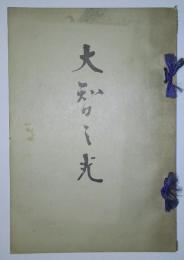 大智之光